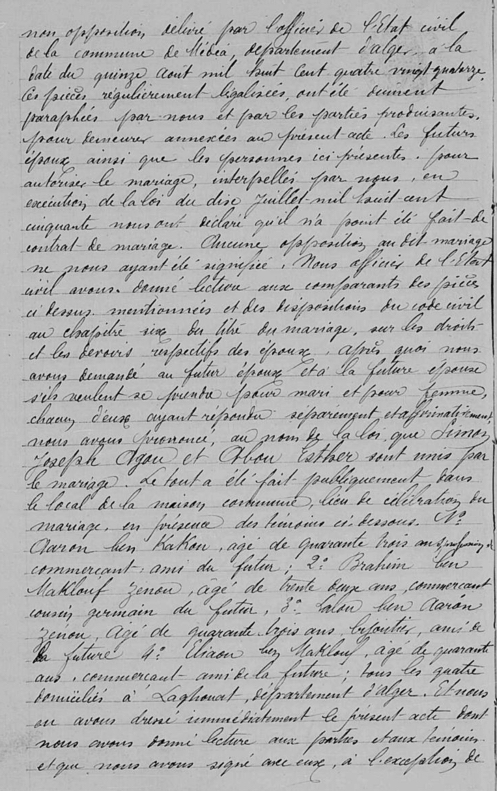 non opposition, délivré par l'officier de l'Etat civil
de la commune de Médéa, département d'alger, à la
date du quinze aout mil huit cent quatre vingt quatorze.
Ces pièces régulièrement légalisées, ont été dument
paraphées par nous et par les parties produisantes,
pour demeurer annexées au présent acte. Les futurs
époux ainsi que les personnes ici présentes pour
autoriser le mariage, interpellés par nous, en
exécution, de la loi du dix Juillet mil huit cent
cinquante nous ont déclaré qu'il n'a point été fait de
contrat de mariage. Aucune opposition au dit mariage
ne nous ayant été signifiée, Nous officier de l'Etat
civil avons donné lection aux comparants des pièces
ci dessus mentionnées et des dispositions du code civil
au chapitre six du titre du mariage, sur les droits
et les devoirs respectifs des époux, après quoi nous
avons demandé au futur époux et à la future épouse
s'ils veulent se prendre pour mari et pour femme,
chacun d'eux ayant répondu séparement, et affirmativement,
nous avons prononcé, au nom de la loi, que Simon
Joseph Agou et Abou Esther sont unis par
le mariage. Le tout a été fait publiquement dans
le local de la maison commune, lieu de célébration du
mariage, en présence des témoins ci dessous. 1º
Aaron ben KaKou, agé de quarante trois ans,
commercant ami du futur; 2º Brahim ben
Maklouf Zenou, âgé de trente deux ans, commercant
cousin germain du futur, 3º ben Aaron
Zenou, âgé de quarante trois ans, bijoutier, ami de
la future 4º Eliaou ben Maklouf, âgé de quarante
ans, commercant ami de la future; tous les quatre
domiciliés à Laghouat, département d'alger. Et nous
en avons dressé immédiatement le présent acte dont
nous avons donné lecture aux parties et aux témoins
et que nous avons signé avec eux, à l'exception de